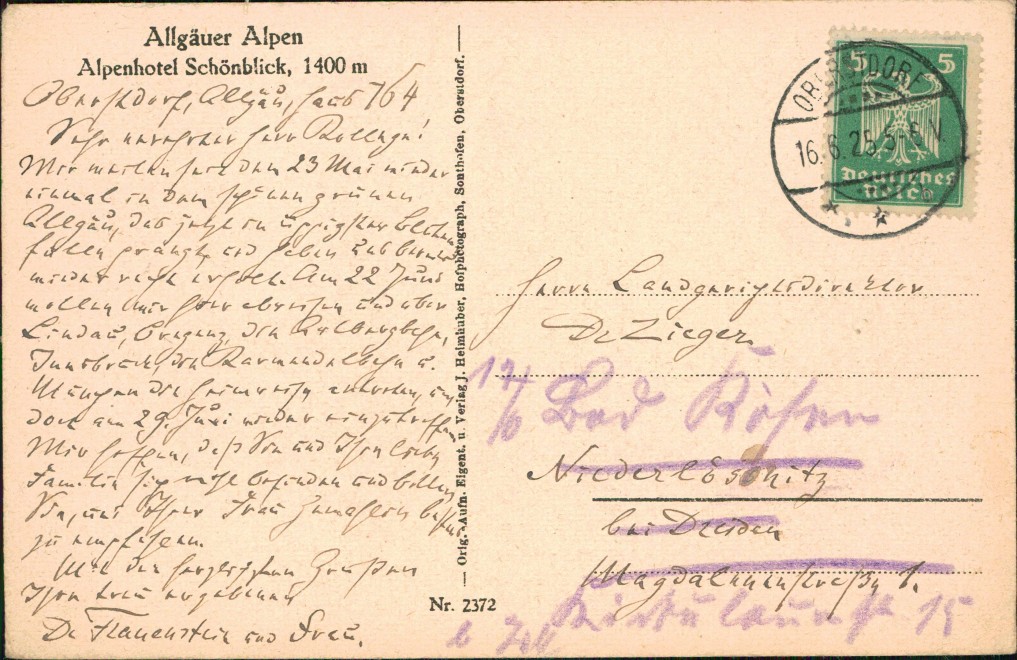 Allgäuer Alpen
Alpenhotel Schönblick, 1400 m
Oberstdorf, Allgäu, Haus 76 1/4
Sehr verehrter Herr Kollege!
Wir weilen seit dem 23 Mai wieder
einmal in dem schönen grünen
Allgäu, das jetzt in üppigster Blüten
fülle prangt und haben uns bereits
wieder recht erholt. Am 22 Juni
wollen wir hier abreisen und über
Lindau, Bregenz, den Arlbergbahn,
Innsbruck, den Karwendelbahn u.
München die Heimreise antreten, um
dort am 29. Juni wieder einzutreffen.
Wir hoffen, daß Sie und Ihre liebe
Familie sich wohl befinden und bitten
Sie, uns Ihrer Frau Gemahlin bestens
zu empfehlen.
Mit den herzlichsten Grüßen
Ihre treu ergebenen
Dr Frauenstein und Frau.
Orig.-Aufn. Eigent. u. Verlag J. Heimhuber, Hofphotograph, Sonthofen, Oberstdorf.
Nr. 2372
OBERSTDORF
16.6.25.5-6 N
5 5
Deutsches
Reich
Herrn Landgerichtsdirektor
Dr Zieger
Bad Kösen
Niederlößnitz
bei Dresden
Magdalenenstraße 1.
15